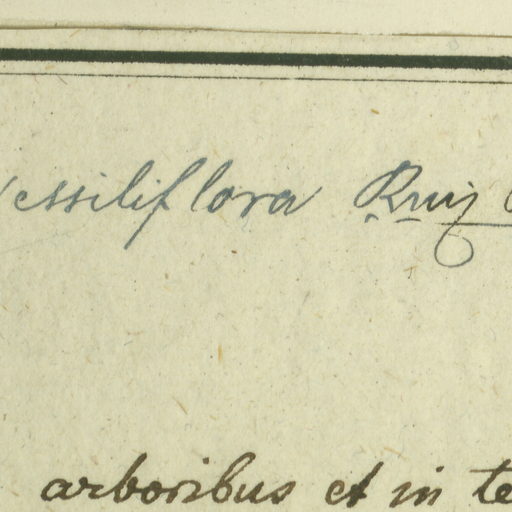 sessiliflora Ruiz
arboribus et in te